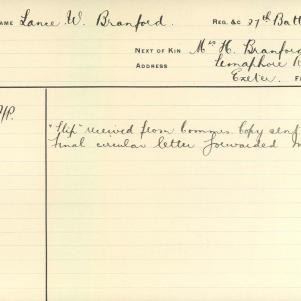 NAME Lance W. Branford. REG. &C 27th Batt
NEXT OF KIN Mrs H. Branford
ADDRESS Semaphore R
Exeter.
"Slip" received from Commrs. Copy sent
Final circular letter forwarded